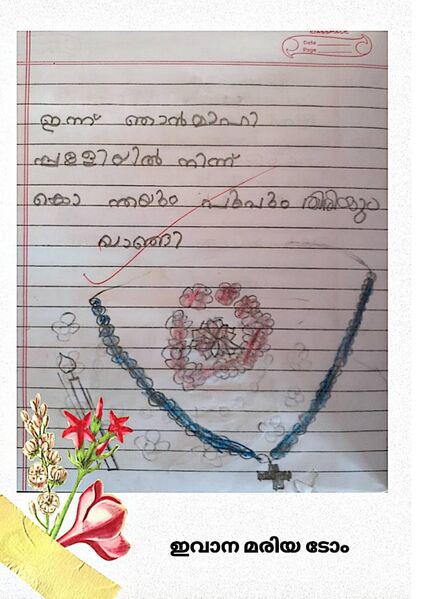 CLASSMATE
Date
Page
ഇന്ന് ഞാൻ മാഹി
പ്പള്ളിയിൽ നിന്ന്
കൊ ന്തയും പൂപും തിരിയും
വാങ്ങി
ഇവാന മരിയ ടോം